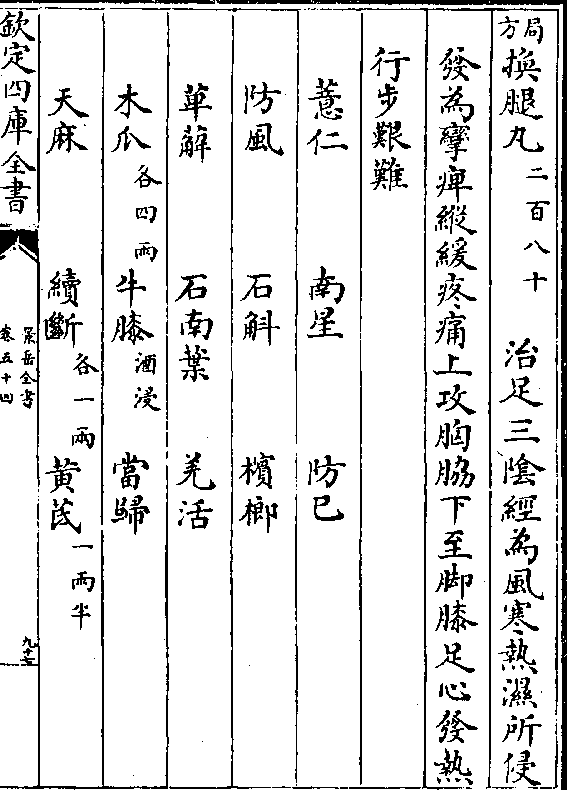 局方換腿丸二百八十 治足三陰經為風寒熱濕所侵
發為攣痺縱緩疼痛上攻胸脇下至脚膝足心發熱
行步艱難
薏仁 南星 防已
防風 石斛 檳榔
萆薢 石南葉 羌活
木瓜各四兩 牛膝酒浸 當歸
天麻 續斷各一兩 黄芪一兩半
欽定四庫全書
景岳全書
卷五十四
九十七